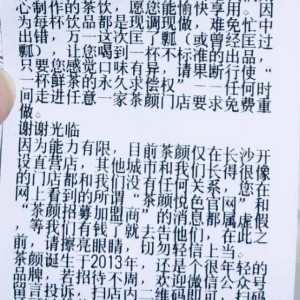 心制作的茶饮，愿您能愉快享用。因
为每杯饮品都是现点现做，难免忙中
出错，万一这次匡了瓢（或曾经匡过
瓢），让您喝到一杯不标准的出品，
只要您感觉口味有异，请果断行使“
一杯鲜茶的永久求偿权”——任何时
间走进任意一家茶颜门店，要求免费重
做。
谢谢光临
因为能力有限，目前茶颜仅在长沙开
设直营店，其他城市和我们长得很像
的门店都和我们没有任何关系，您在
网上看到的所谓“茶颜悦色官网”、
“茶颜招募加盟商”的消息都属虚假
，等我们有钱了就去告他们。当
前，请擦亮眼睛，切勿轻信上当。
茶颜诞生于2013年，还是个很年轻的
品牌，若招待不周，欢迎微信公众号
留言投诉，扫店内二维码即可，